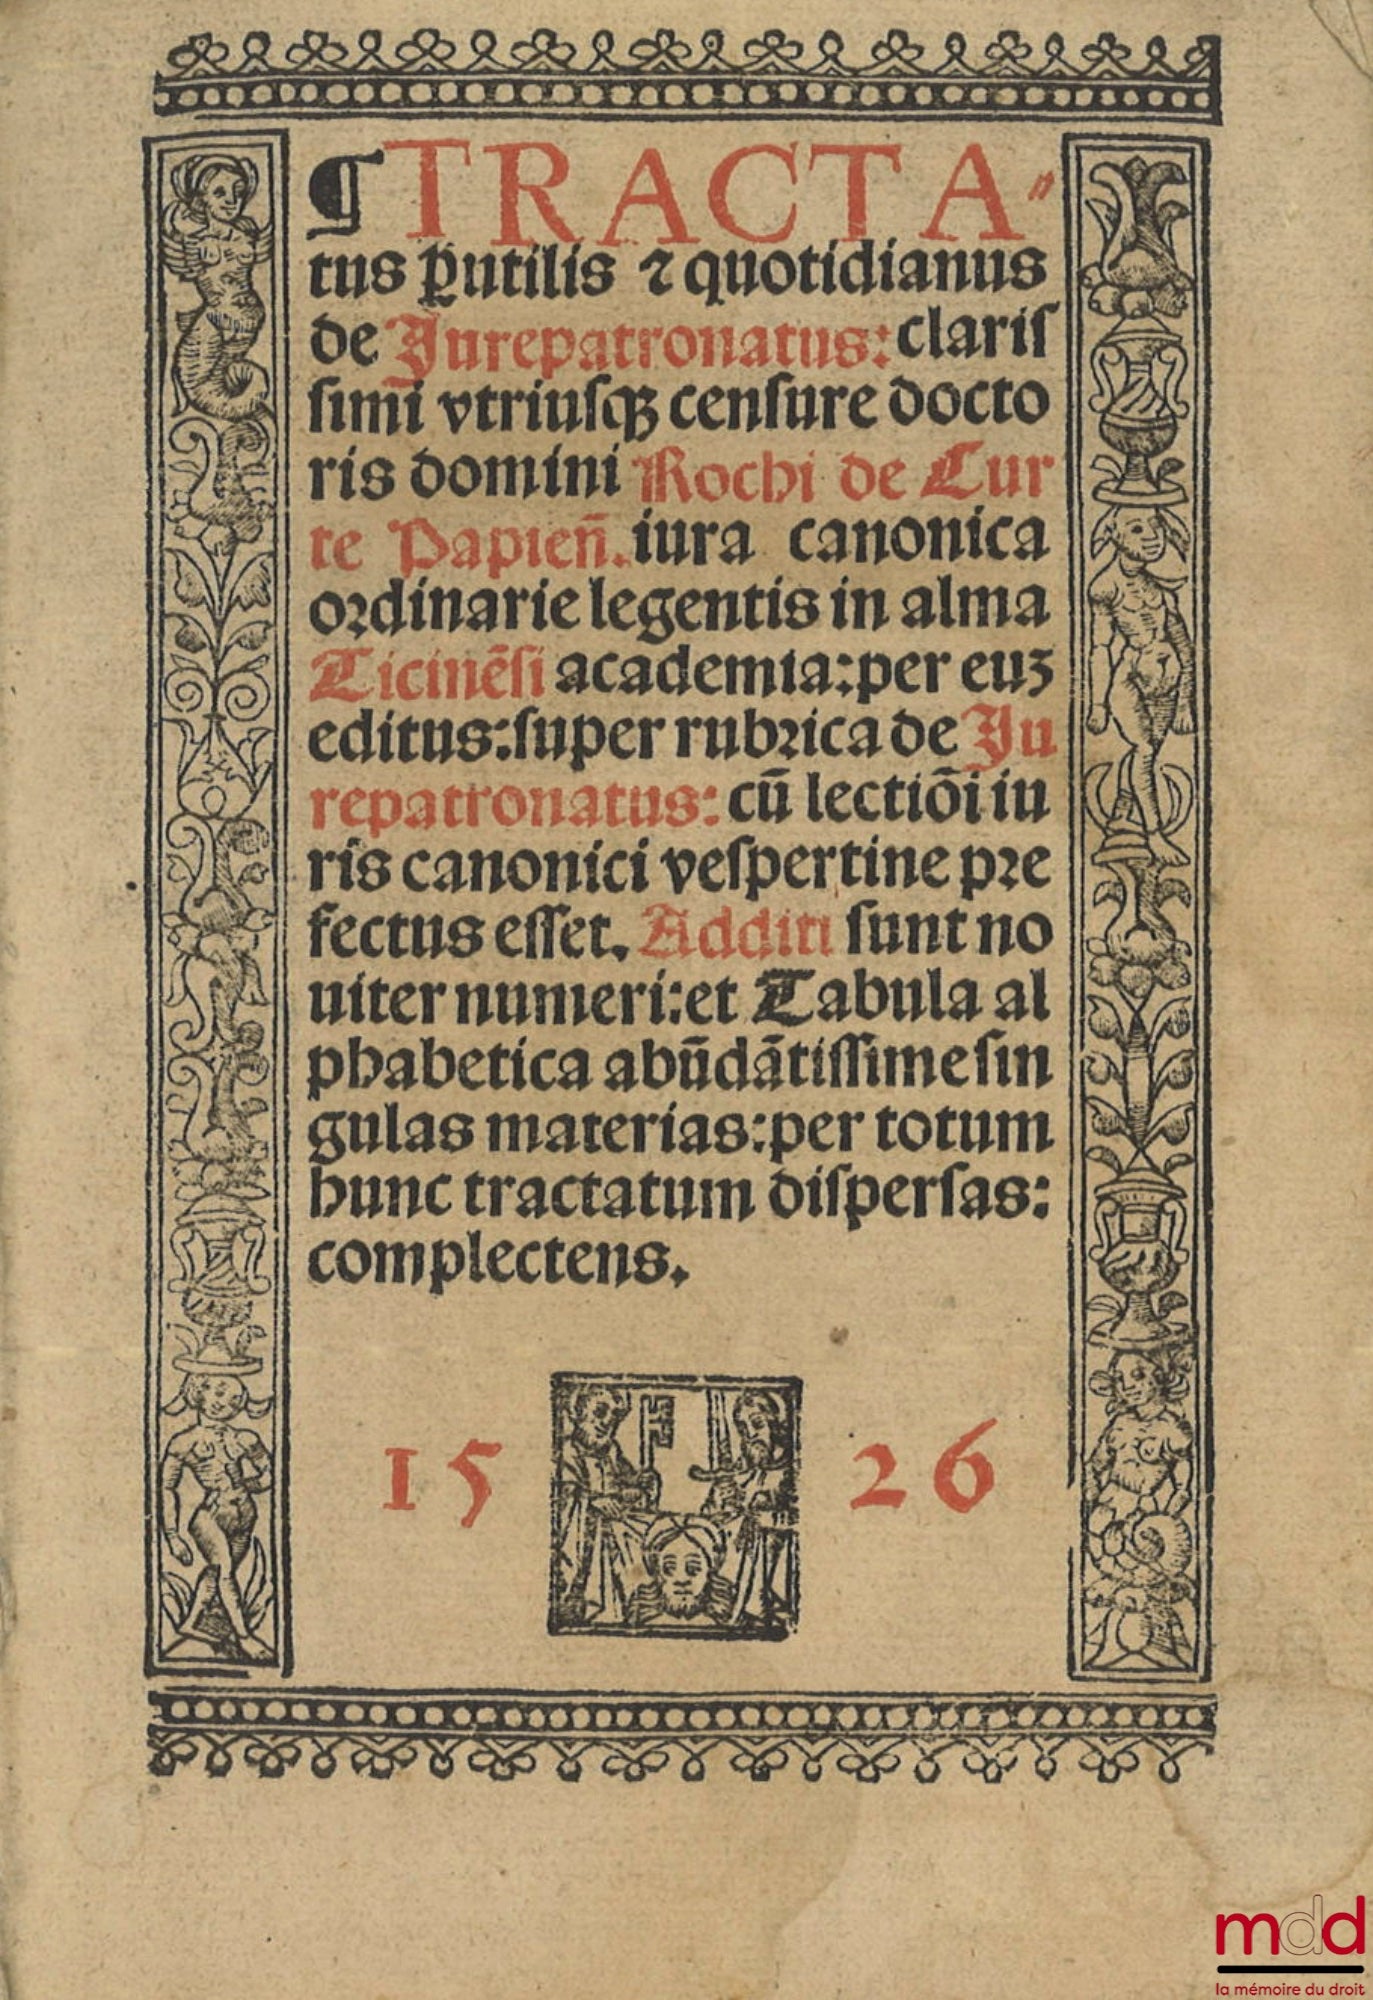 ¶TRACTA〃
tus ꝑutilis ⁊ quotidianus
de Jurepatronatus: clariſ
ſimi vtriuſqꝫ cenſure docto
ris domini Rochi de Cur
te Papien̄. iura canonica
oꝛdinarie legentis in alma
Ticinēſi academia: per euꝫ
editus: ſuper rubꝛica de Ju
repatronatus: cū lectiōi iu
ris canonici veſpertine pꝛe
fectus eſſet. Additi ſunt no
uiter numeri: et Tabula al
phabetica abūdātiſſime ſin
gulas materias: per totum
hunc tractatum diſperſas:
complectens.
15 26
mdd
la mémoire du droit